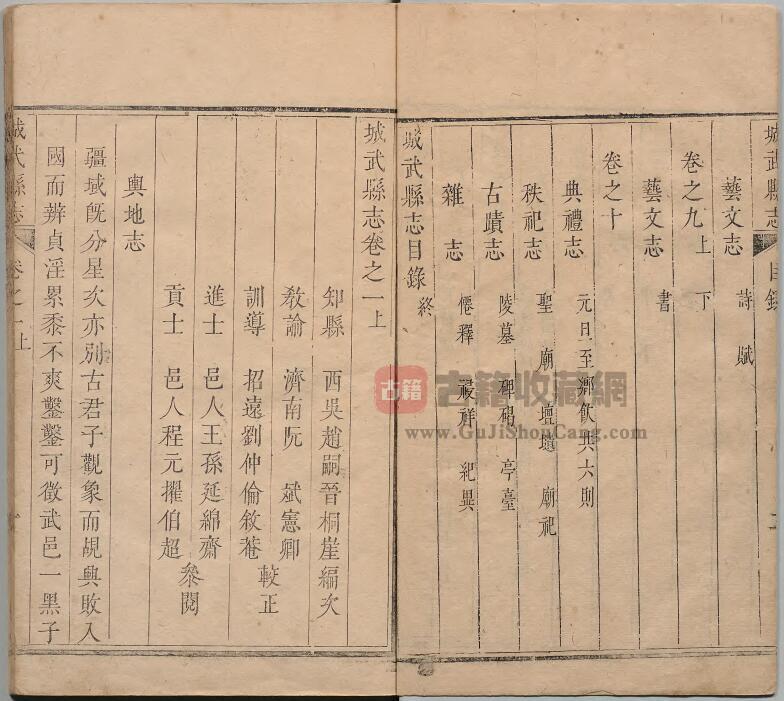 城武縣志 目錄 二
藝文志 詩 賦
卷之九 上 下
藝文志 書
卷之十
典禮志 元旦至鄉飲共六則
秩祀志 聖廟 壇壝 廟祀
古蹟志 陵墓 碑碣 亭臺
雜志 僊釋 祲祥 紀異
城武縣志目錄終
城武縣志卷之一上
知縣 西吳趙嗣晉桐崖編次
教諭 濟南阮 斌憲卿
訓導 招遠劉仲倫敘菴
較正
進士 邑人王孫延綿齋
貢士 邑人程元擢伯超
叅閱
輿地志
疆域旣分星次亦別古君子觀象而覘興敗入
國而辨貞淫累黍不爽鑿鑿可徵武邑一黑子
城武縣志 卷之一上
古籍 古籍收藏網
www.GuJiShouCang.com